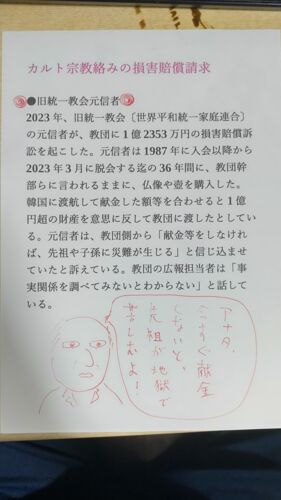 カルト宗教絡みの損害賠償請求
●旧統一教会元信者
2023年、旧統一教会〔世界平和統一家庭連合〕
の元信者が、教団に1億2353万円の損害賠償訴
訟を起こした。元信者は1987年に入会以降から
2023年3月に脱会する迄の36年間に、教団幹
部らに言われるままに、仏像や壺を購入した。
韓国に渡航して献金した額等を合わせると1億
円超の財産を意思に反して教団に渡したとしてい
る。元信者は、教団側から「献金等をしなけれ
ば、先祖や子孫に災難が生じる」と信じ込ませ
ていたと訴えている。教団の広報担当者は「事
実関係を調べてみないとわからない」と話して
いる。
アナタ、
今すぐ献金
しないと、
先祖が地獄で
苦しむよ!